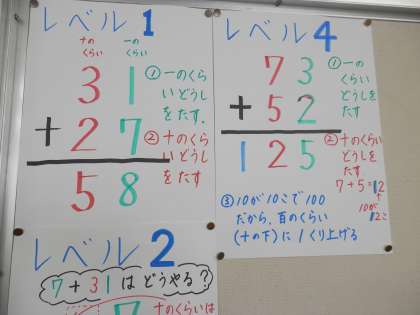 レベル1
十の
くらい
一の
くらい
31
+27
58
①一のくら
いどうし
をたす.
②十のくら
いどうし
をたす
レベル4
73
+52
125
①一の
くらい
どうしを
たす
②十のくらい
どうしを
たす
7+5=12
10が
12こ
③10が10こで100
だから、百のくらい
(十の下)に1くり上げる
レベル2
7+31はどうやる?
7
十のくらいは